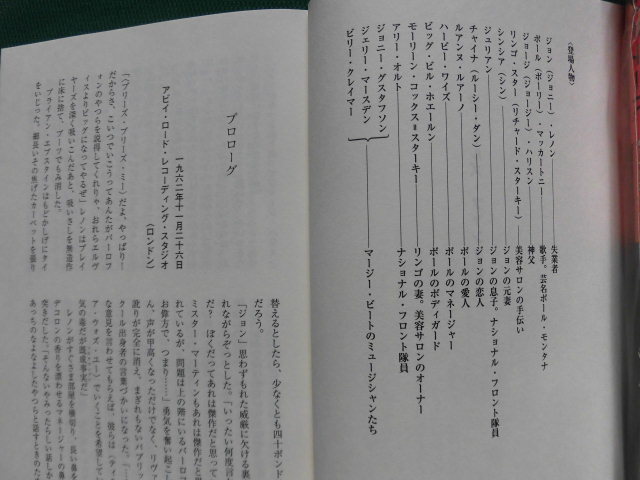 〈登場人物〉
ジョン（ジョニー）・レノン――失業者
ポール（ポーリー）・マッカートニー――歌手。芸名ポール・モンタナ
ジョージ（ジョージー）・ハリスン――神父
リンゴ・スター（リチャード・スターキー）――美容サロンの手伝い
シンシア（シン）――ジョンの元妻
ジュリアン――ジョンの息子。ナショナル・フロント隊員
チャイナ（ルーシー・ダン）――ジョンの恋人
ルアンヌ・ルアーノ――ポールの愛人
ハービー・ワイズ――ポールのマネージャー
ビッグ・ビル・ホエールン――ポールのボディガード
モーリーン・コックス＝スターキー――リンゴの妻。美容サロンのオーナー
アリー・オルト――ナショナル・フロント隊員
ジョニー・グスタフソン
ジェリー・マースデン
ビリー・クレイマー
マージー・ビートのミュージシャンたち
プロローグ
一九六二年十一月二十六日
アビイ・ロード・レコーディング・スタジオ
（ロンドン）
「〈プリーズ・プリーズ・ミー〉だよ、やっぱり！
だからさ、こいつでいこうってあんたがパーロフ
ォンのやつらを説得してくれりゃ、おれらエルヴ
ィスよりビッグになってやるぜ」レノンはプレイ
ヤーズを深く吸いこんだあと、吸いさしを無造作
に床に捨て、ブーツでもみ消した。
ブライアン・エプスタインはもどかしげにタイ
をいじった。細長いその焦げたカーペットを張り
替えるとしたら、少なくとも四十ポンド
だろう。
「ジョン」思わずもれた威厳に欠ける裏
れながらぞっとした。「いったい何度言
だ？　ぼくだってあれは傑作だと思って
ミスター・マーティンもあれは傑作だと思
れているが、問題は上の階にいるパーロフ
お偉方で、つまり……」勇気を奮い起こし
ん、声が甲高くなっただけでなく、リヴ
訛りが完全に消え、まぎれもないパブリッ
クール出身者の言葉づかいになった。「…
な意見を言わせてもらえば、彼らは〈ティ
ア・ウォズ・ユー〉でいくことを希望してい
気の毒だが既成事実だ」
レノンが大またで部屋を横切り、長い鼻を
デコロンの香りを漂わせるマネージャーの鼻
突きだした。「そんないやみったらしい話しか
あっちのなよなよしたやつらと話すときのため